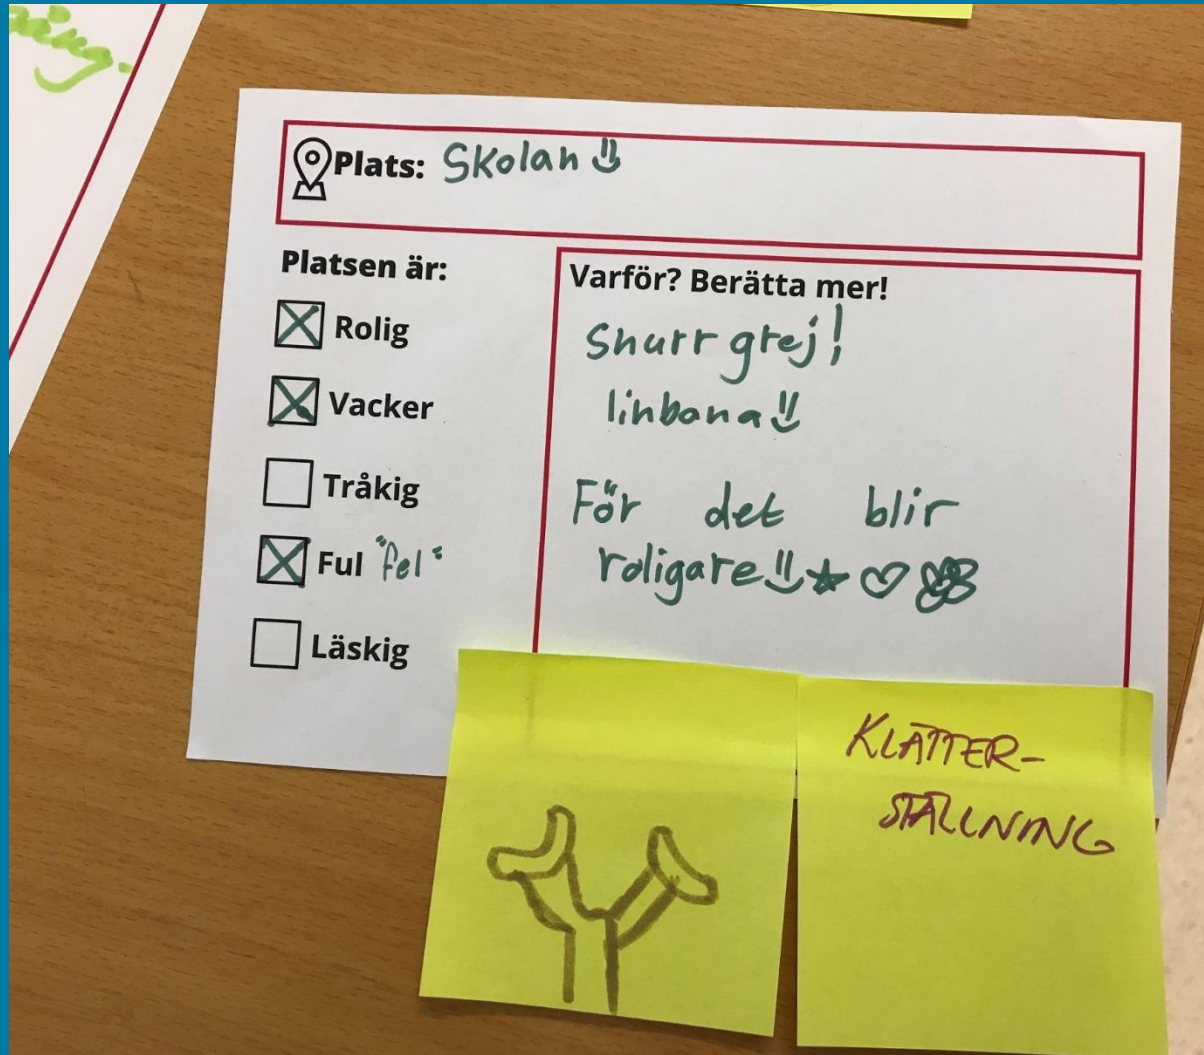 Plats: Skolan
Platsen är:
Rolig
Vacker
Tråkig
Ful "fel"
Läskig
Varför? Berätta mer!
Snurr grej!
linbana
För det blir
roligare
KLÄTTER-
STÄLLNING